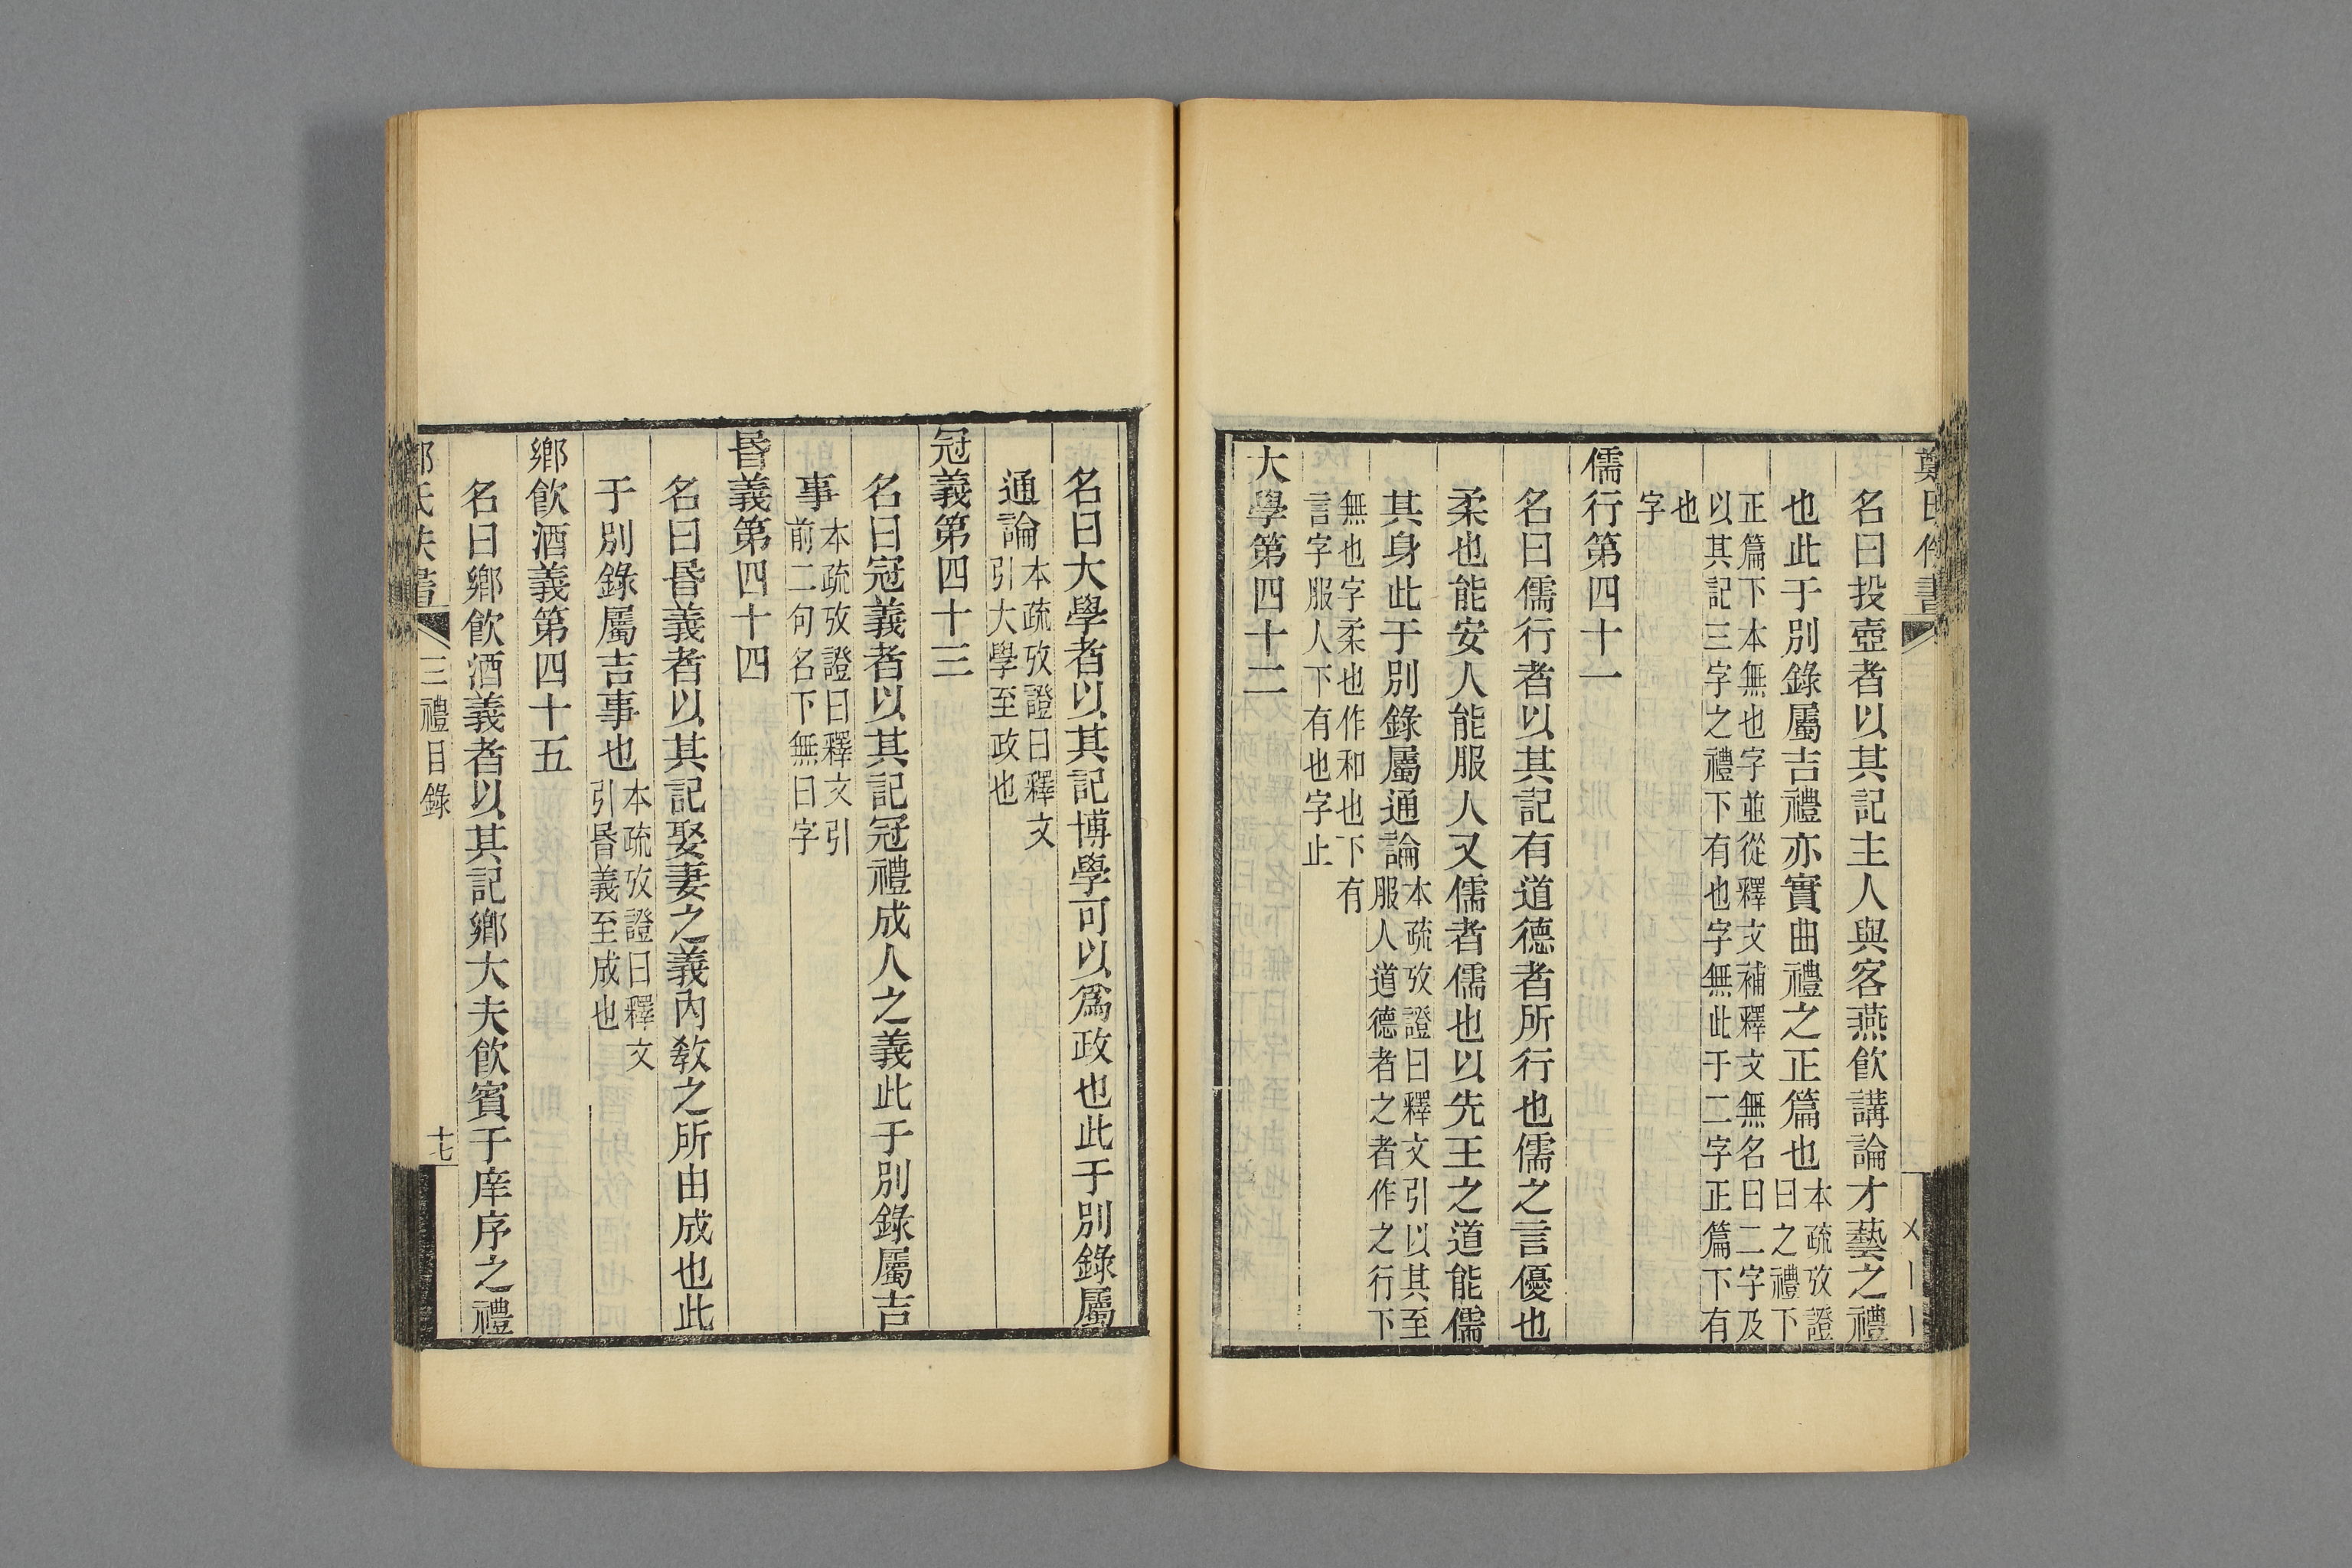 名曰投壺者以其記主人與客燕飮講論才藝之禮
也此于別錄屬吉禮亦實曲禮之正篇也本疏攷證
曰之禮下
正篇下本無也字並從釋文補釋文無名曰二字及
以其記三字之禮下有也字無此于二字正篇下有
也
字
儒行第四十一
名曰儒行者以其記有道德者所行也儒之言優也
柔也能安人能服人又儒者儒也以先王之道能儒
其身此于別錄屬通論本疏攷證曰釋文引以其至
服人道德者之者作之行下
無也字柔也作和也下有
言字服人下有也字止
大學第四十二
名曰大學者以其記博學可以爲政也此于別錄屬
通論本疏攷證曰釋文
引大學至政也
冠義第四十三
名曰冠義者以其記冠禮成人之義此于別錄屬吉
事本疏攷證曰釋文引
前二句名下無曰字
昬義第四十四
名曰昬義者以其記娶妻之義內敎之所由成也此
于別錄屬吉事也本疏攷證曰釋文
引昬義至成也
鄉飮酒義第四十五
名曰鄉飮酒義者以其記鄉大夫飮賓于庠序之禮
三禮目錄
十七